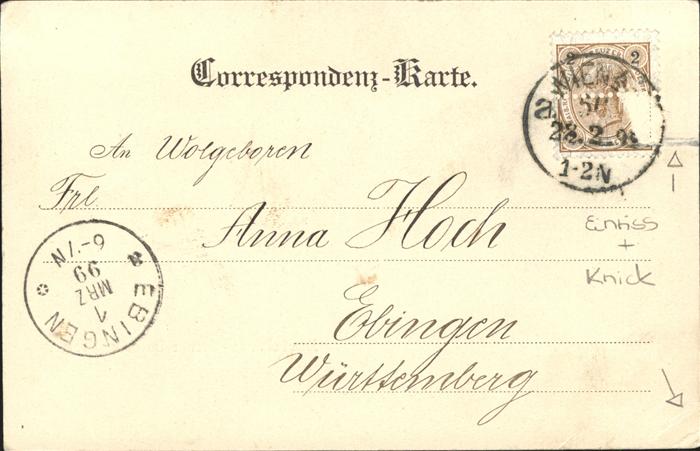 Correspondenz-Karte.
2 2
WIEN
28.2.99
1-2N
An Wolgeboren
Frl.
Anna Hoch
Einriss
+
Knick
6-7N
99
MRZ
1
EBINGEN
Ebingen
Württemberg